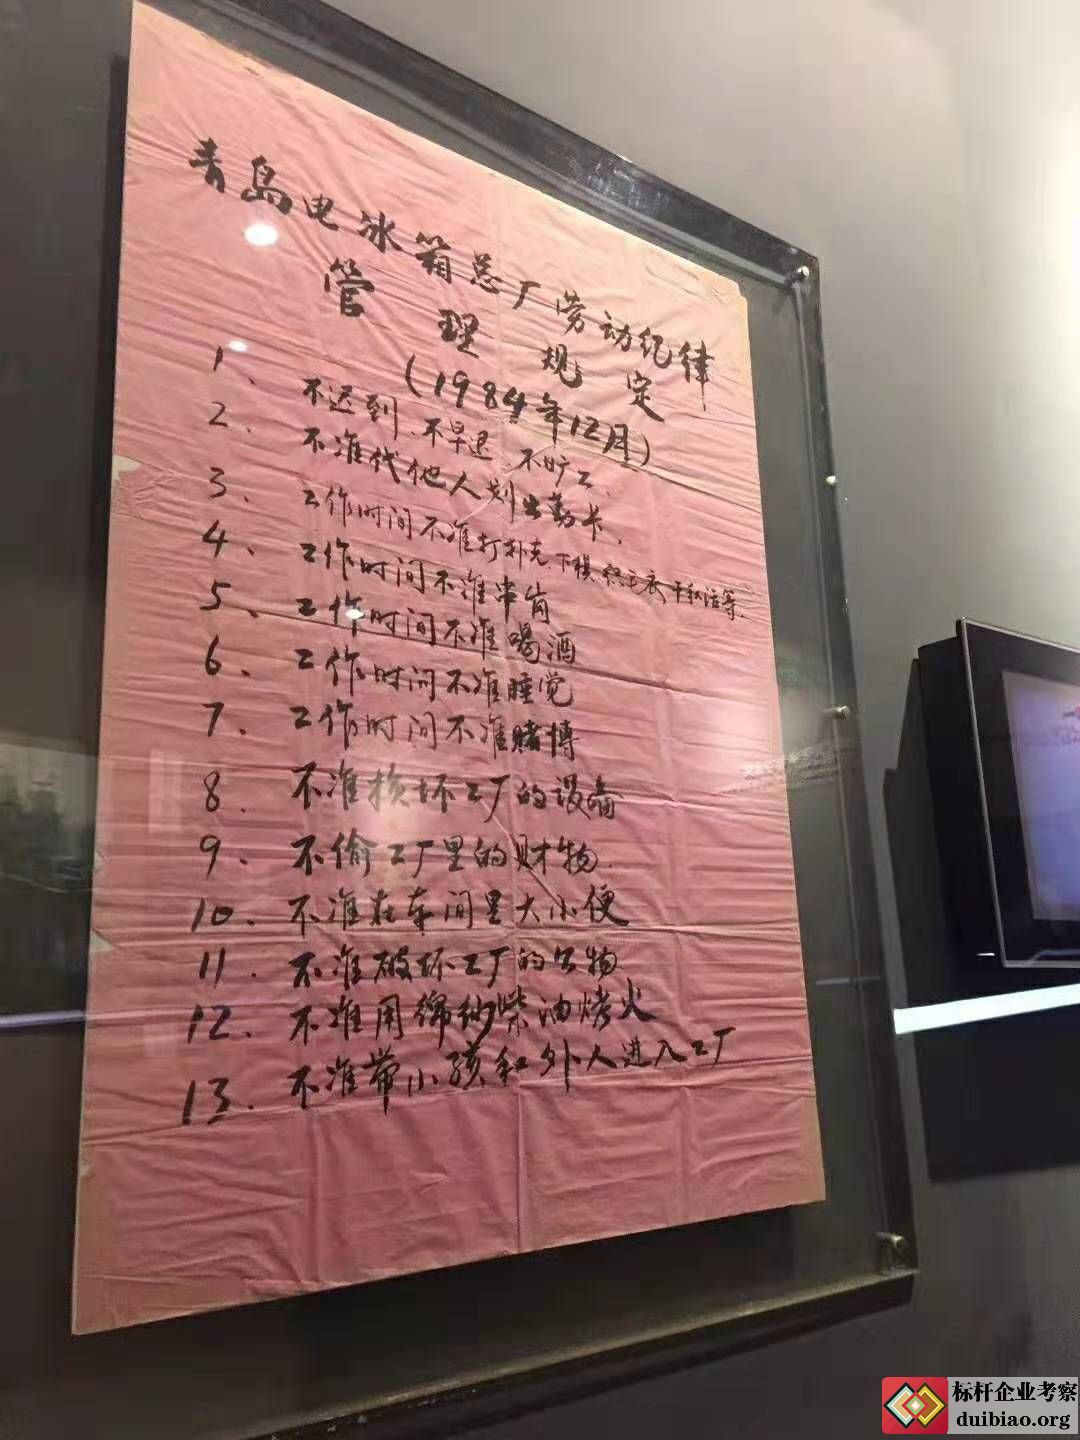 青岛电冰箱总厂劳动纪律
管理规定
(1984年12月)
1、不迟到、不早退、不旷工、
2、不准代他人划出勤卡、
3、工作时间不准打扑克、下棋、织毛衣、干私活等、
4、工作时间不准串岗
5、工作时间不准喝酒
6、工作时间不准睡觉
7、工作时间不准赌博
8、不准损坏工厂的设备
9、不偷工厂里的财物、
10、不准在车间里大小便
11、不准破坏工厂的公物
12、不准用绵纱柴油烤火
13、不准带小孩和外人进入工厂
标杆企业考察
duibiao.org